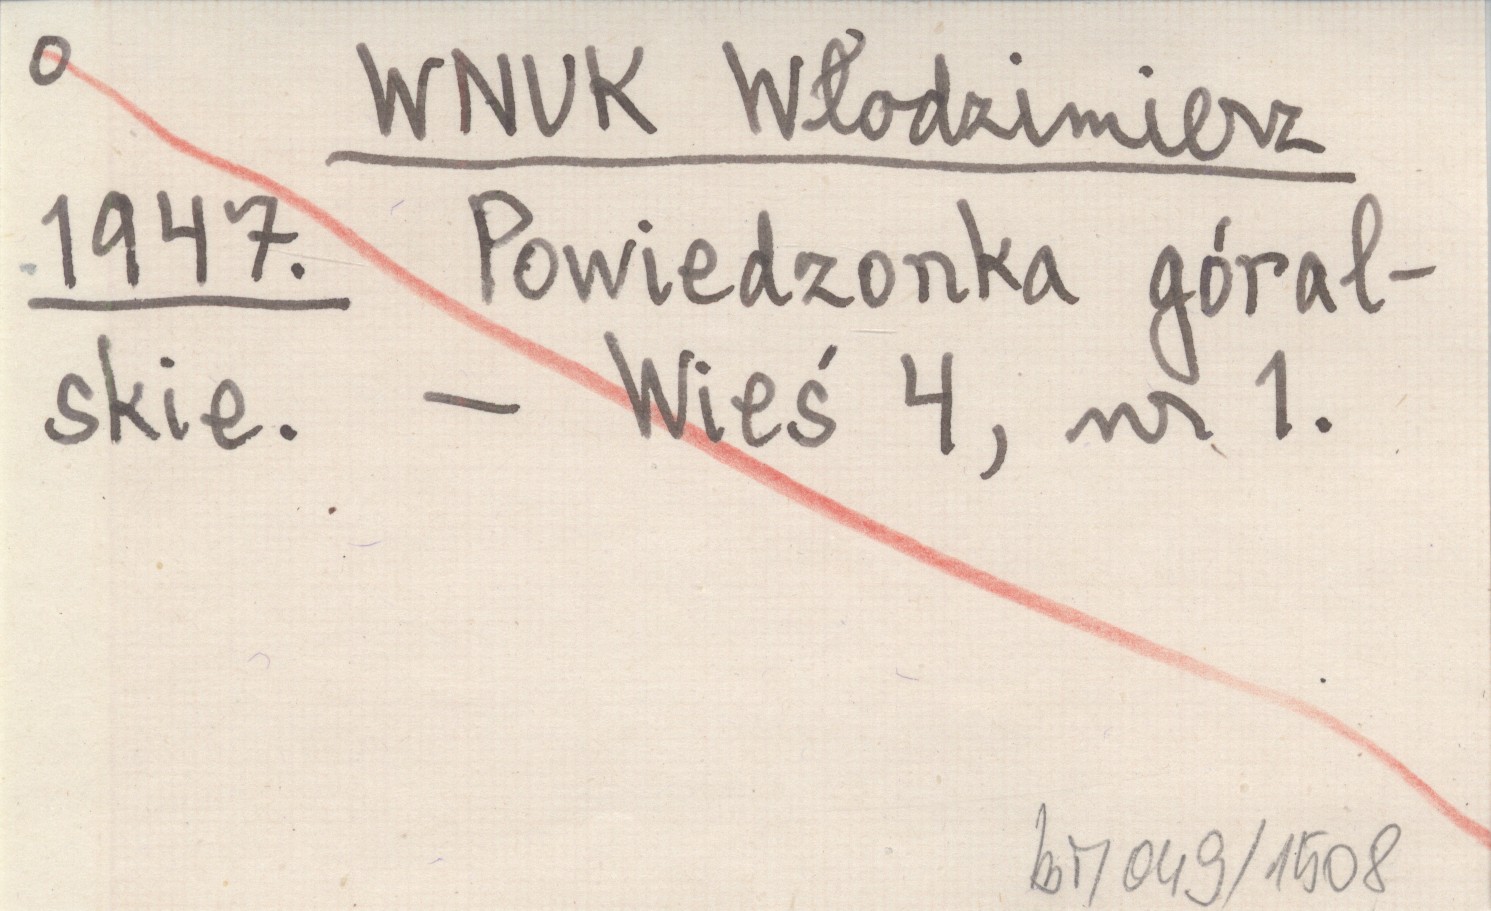 o WNUK Włodzimierz
1947. Powiedzonka góral-
skie. — Wieś 4, nr 1.
049/1508